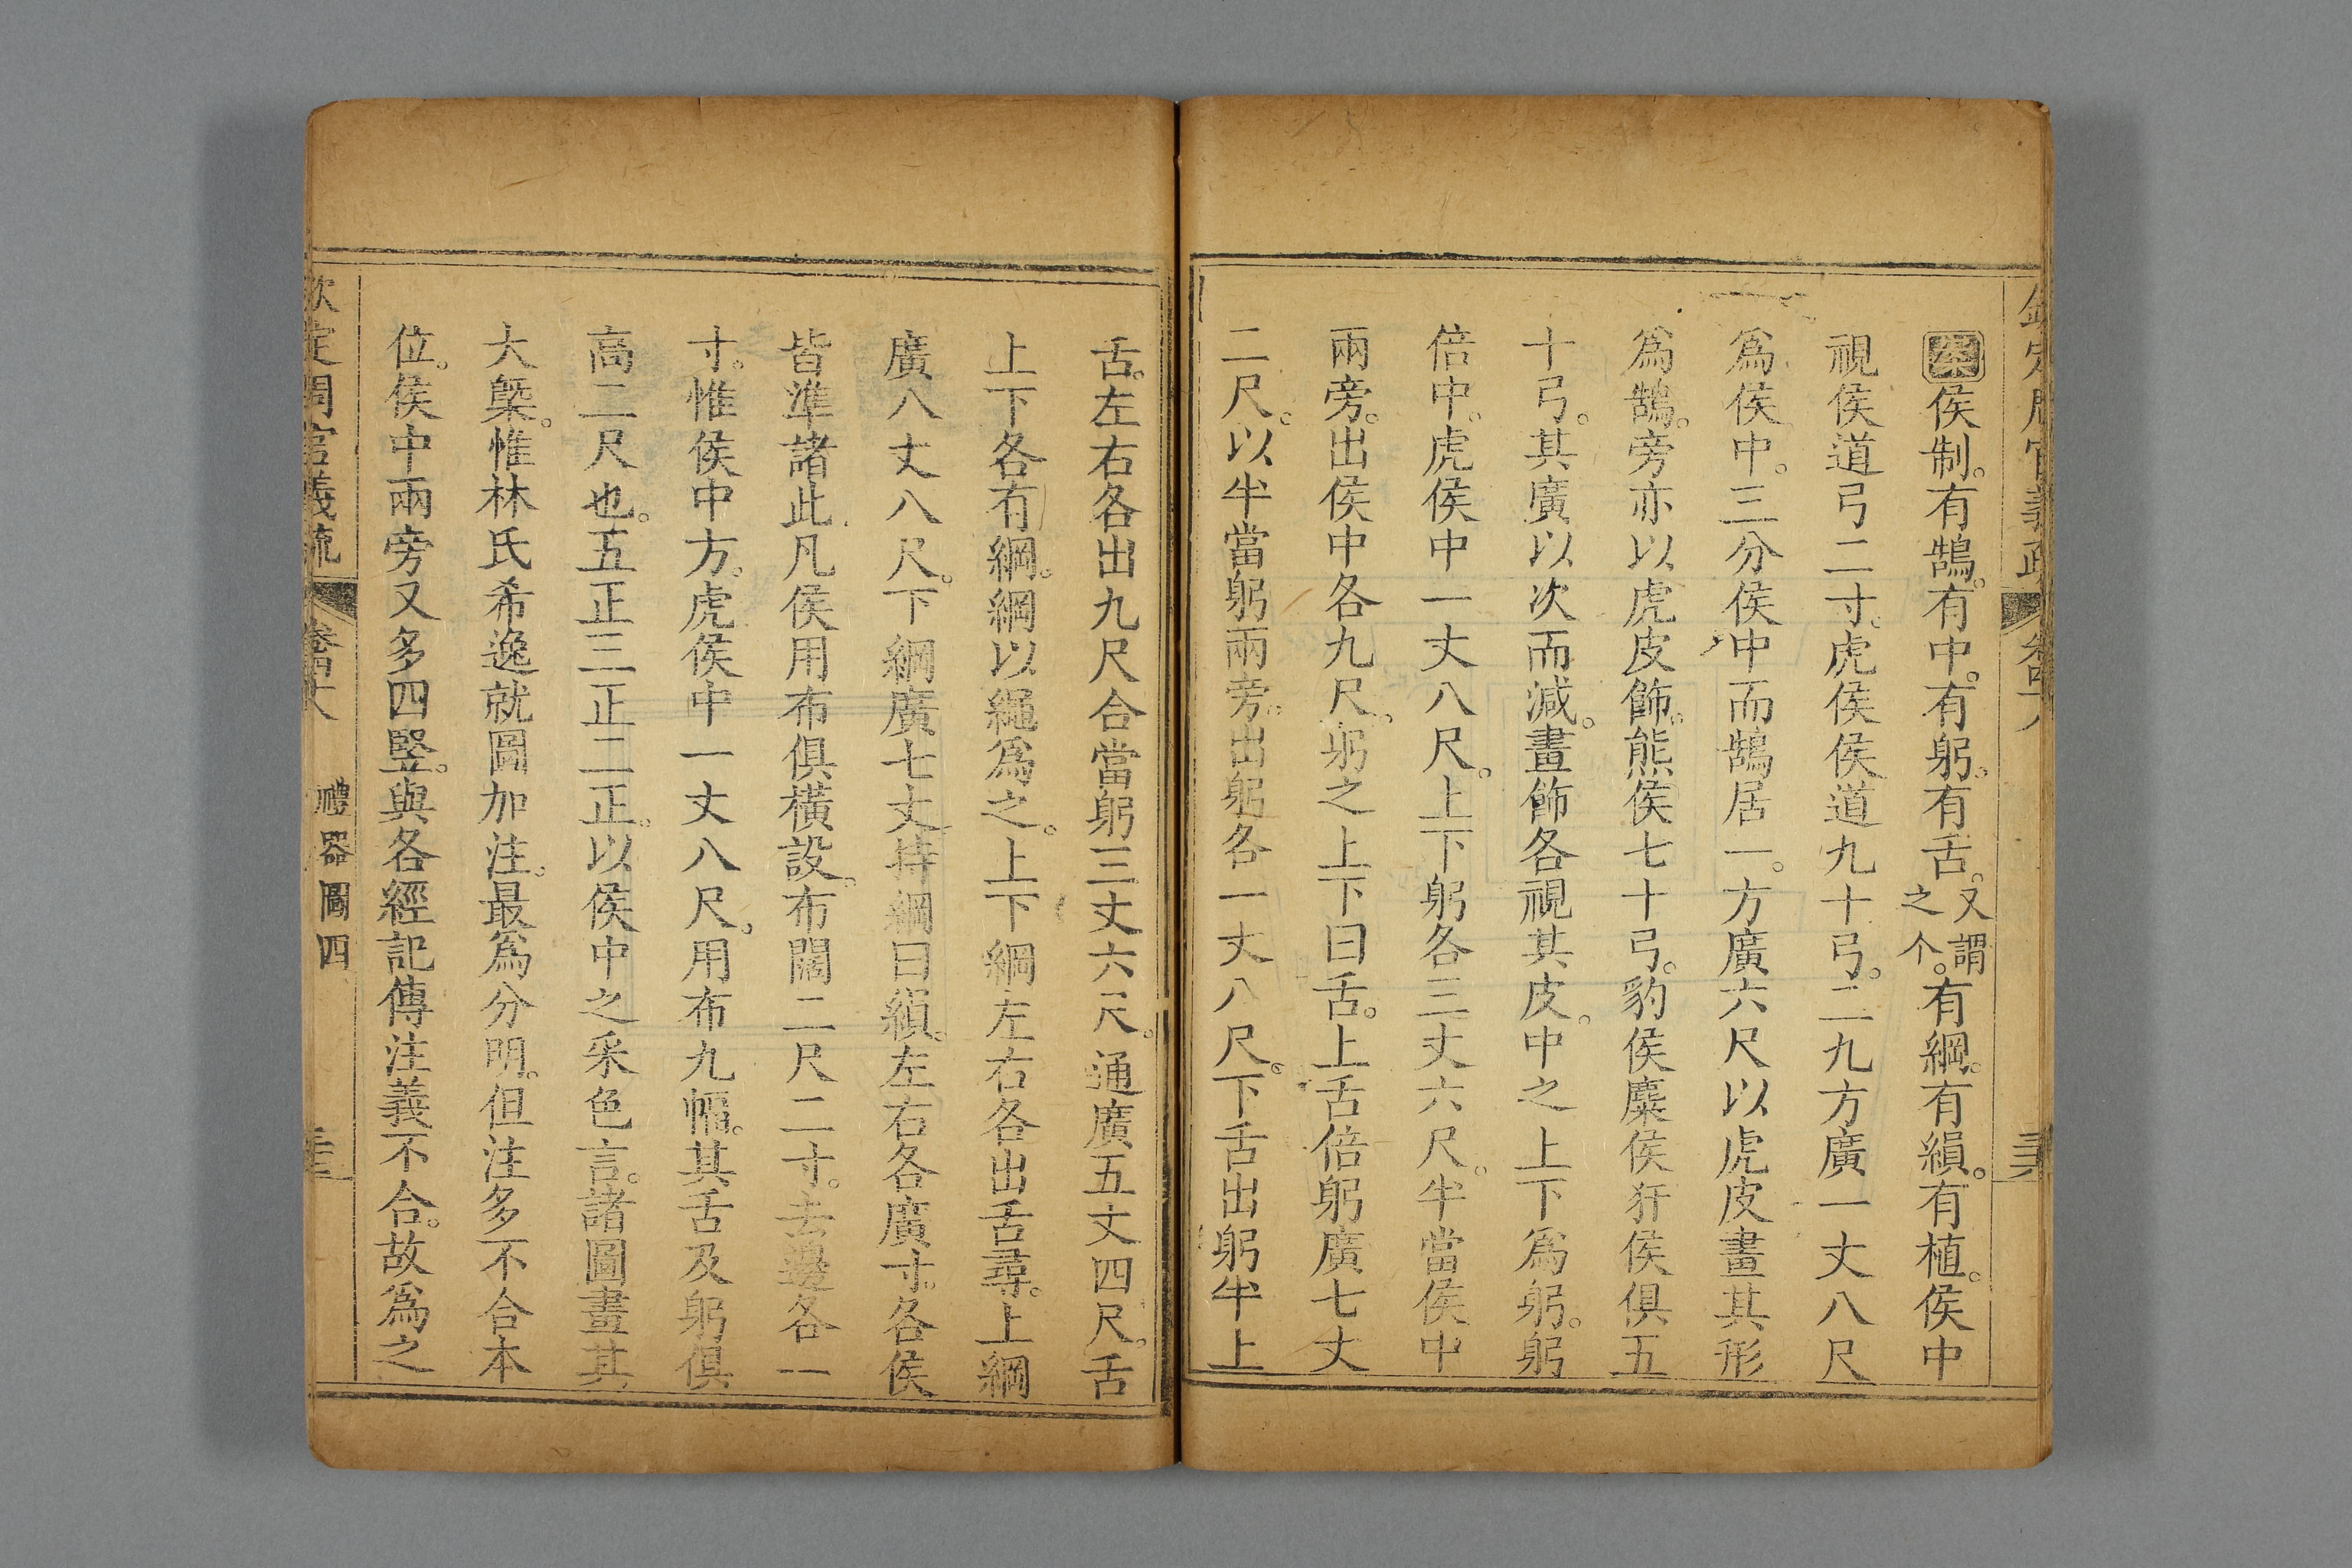 欽定周官義疏 卷四十八
案侯制。有鵠。有中。有躬。有舌。又謂之个。有綱。有縜。有植。侯中
視侯道弓二寸。虎侯侯道九十弓。二九方廣一丈八尺
爲侯中。三分侯中而鵠居一。方廣六尺以虎皮畫其形
爲鵠。旁亦以虎皮飾。熊侯七十弓。豹侯麋侯豻侯俱五
十弓。其廣以次而減。畫飾各視其皮。中之上下爲躬。躬
倍中。虎侯中一丈八尺。上下躬各三丈六尺。半當侯中
兩旁。出侯中各九尺。躬之上下曰舌。上舌倍躬廣七丈
二尺。以半當躬兩旁。出躬各一丈八尺。下舌出躬半上
舌。左右各出九尺合當躬三丈六尺。通廣五丈四尺。舌
上下各有綱。綱以繩爲之。上下綱左右各出舌尋。上綱
廣八丈八尺。下綱廣七丈。持綱曰縜。左右各廣寸。各侯
皆準諸此。凡侯用布俱橫設。布闊二尺二寸。去邊各一
寸。惟侯中方。虎侯中一丈八尺。用布九幅。其舌及躬俱
高二尺也。五正三正二正。以侯中之采色言。諸圖畫其
大槩。惟林氏希逸就圖加注。最爲分明。但注多不合本
位。侯中兩旁又多四豎。與各經記傳注義不合。故爲之
欽定周官義疏 卷四十八 禮器圖四